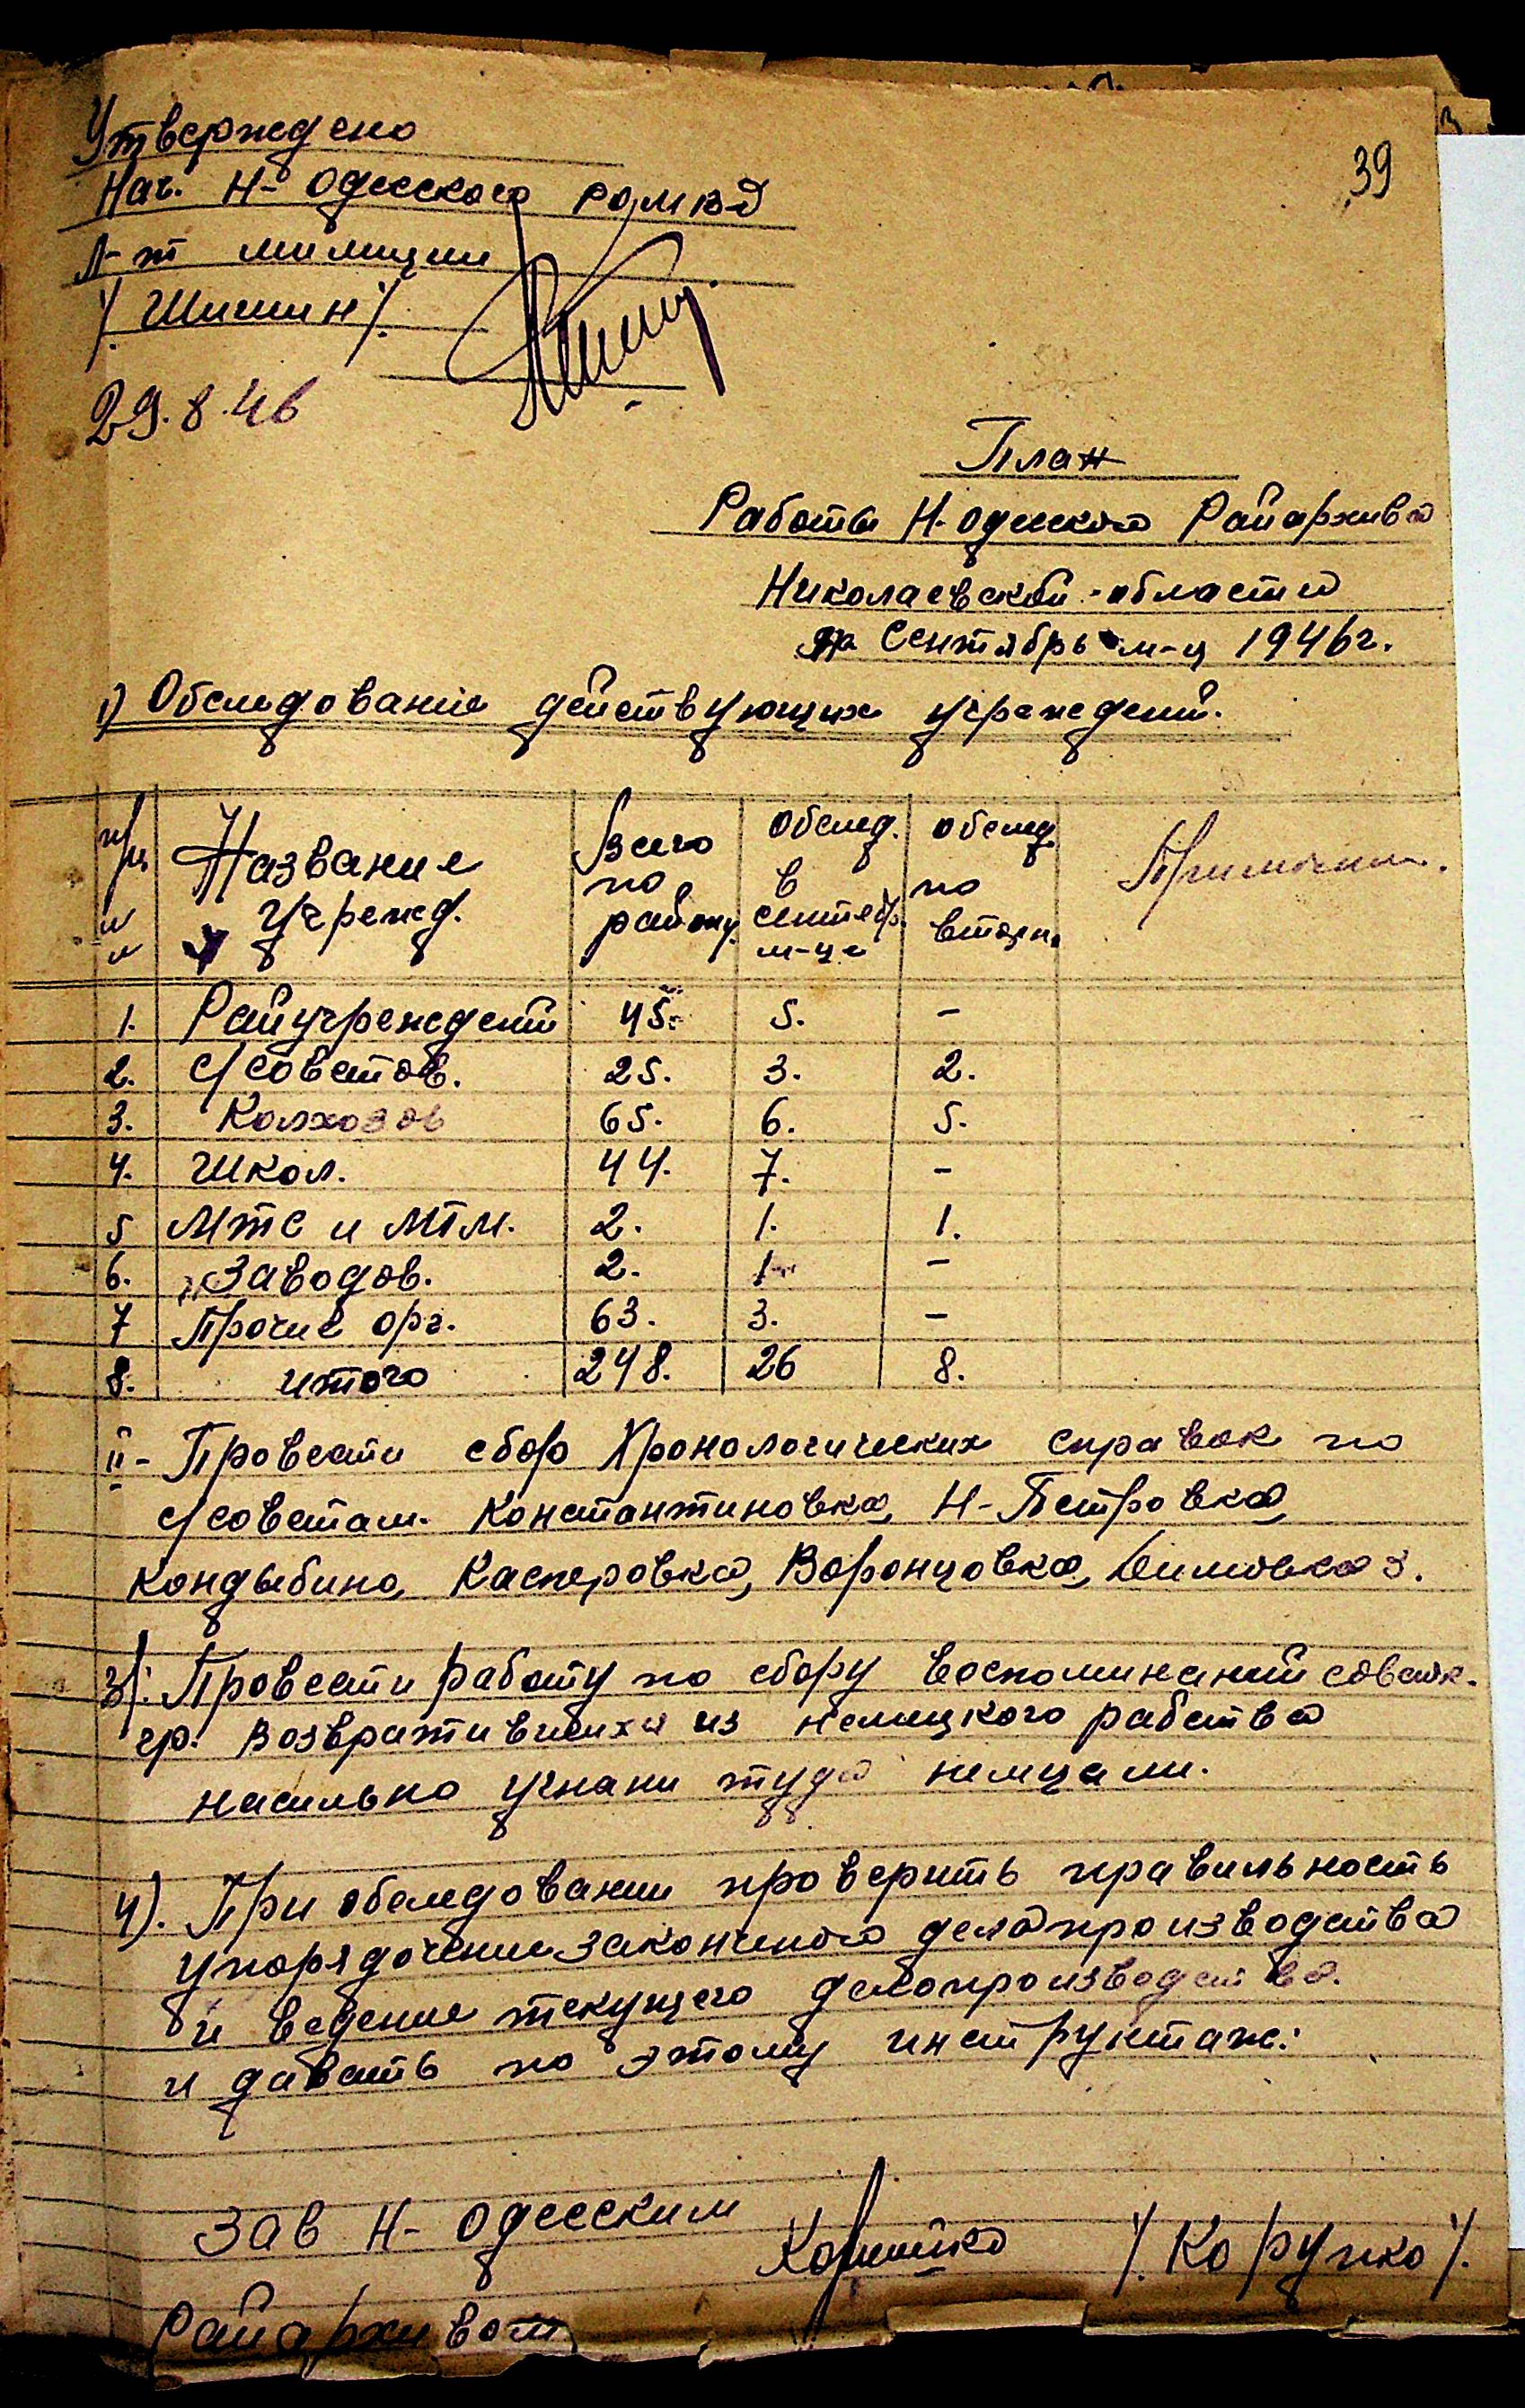 39
Утверждено
Нач. Н-Одесского РОМВД
Л-т милиции
/Шишин/
29.8.46
План
Работы Н.Одесского Райархива
Николаевской области
на Сентябрь м-ц 1946г.
1) Обследование действующих учреждений.
п/п Название учрежд. Всего по району. Обслед. в сентябр. м-це обслед. по вторн. Примечание.
1. Райучреждений 45. 5. -
2. с/советов. 25. 3. 2.
3. Колхозов 65. 6. 5.
4. Школ. 44. 7. -
5 МТС и МТМ. 2. 1. 1.
6. Заводов. 2. 1 -
7 Прочие орг. 63. 3. -
8. итого 248. 26 8.
II - Провести сбор Хронологических справок по
с/советам. Константиновка, Н-Петровка,
Кондыбино, Касперовка, Воронцовка,
3). Провести работу по сбору воспоминаний советск.
гр. возвратившихся из немецкого рабства
насильно угнани туда немцами.
4). При обследовании проверить правильность
упорядочение законченого делопроизводства
и ведение текущего делопроизводства.
и давать по этому инструктаж.
Зав Н-Одесским
Райархивом /Корупко/.